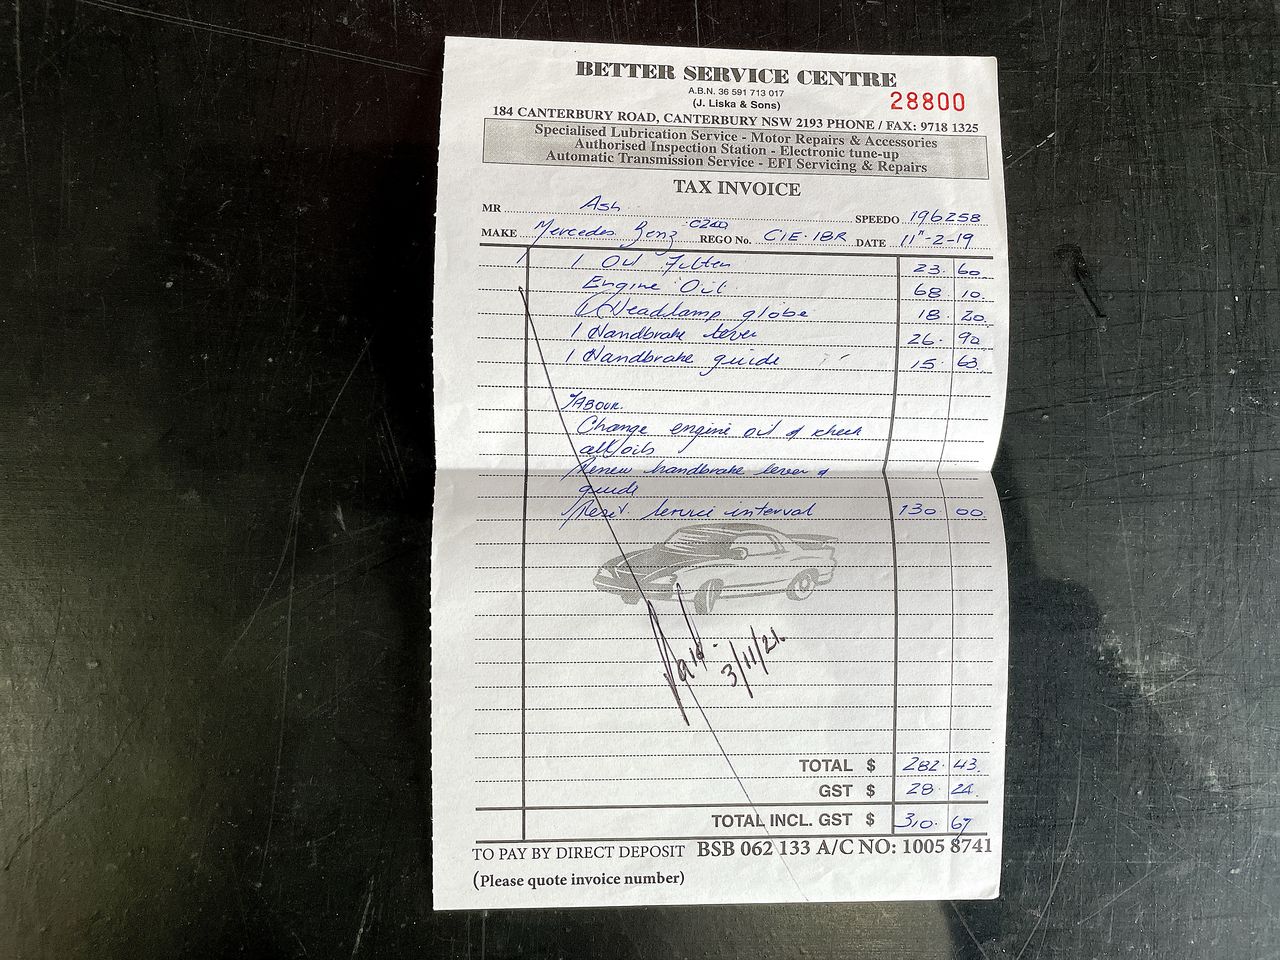 BETTER SERVICE CENTRE
A.B.N. 36 591 713 017
(J. Liska & Sons)
28800
184 CANTERBURY ROAD, CANTERBURY NSW 2193 PHONE / FAX: 9718 1325
Specialised Lubrication Service - Motor Repairs & Accessories
Authorised Inspection Station - Electronic tune-up
Automatic Transmission Service - EFI Servicing & Repairs
TAX INVOICE
MR Ash SPEEDO 196258
MAKE Mercedes Benz C240 REGO No. CIE·18R DATE 11-2-19
1 Oil Filter 23.60
Engine Oil 68.10
1 Headlamp globe 18.20
1 Handbrake lever 26.90
1 Handbrake guide 15.63
LABOUR.
Change engine oil & check
all oils
Renew handbrake lever &
guide
Reset service interval 130.00
Paid.
3/11/21.
TOTAL $ 282.43
GST $ 28.24
TOTAL INCL. GST $ 310.67
TO PAY BY DIRECT DEPOSIT BSB 062 133 A/C NO: 1005 8741
(Please quote invoice number)